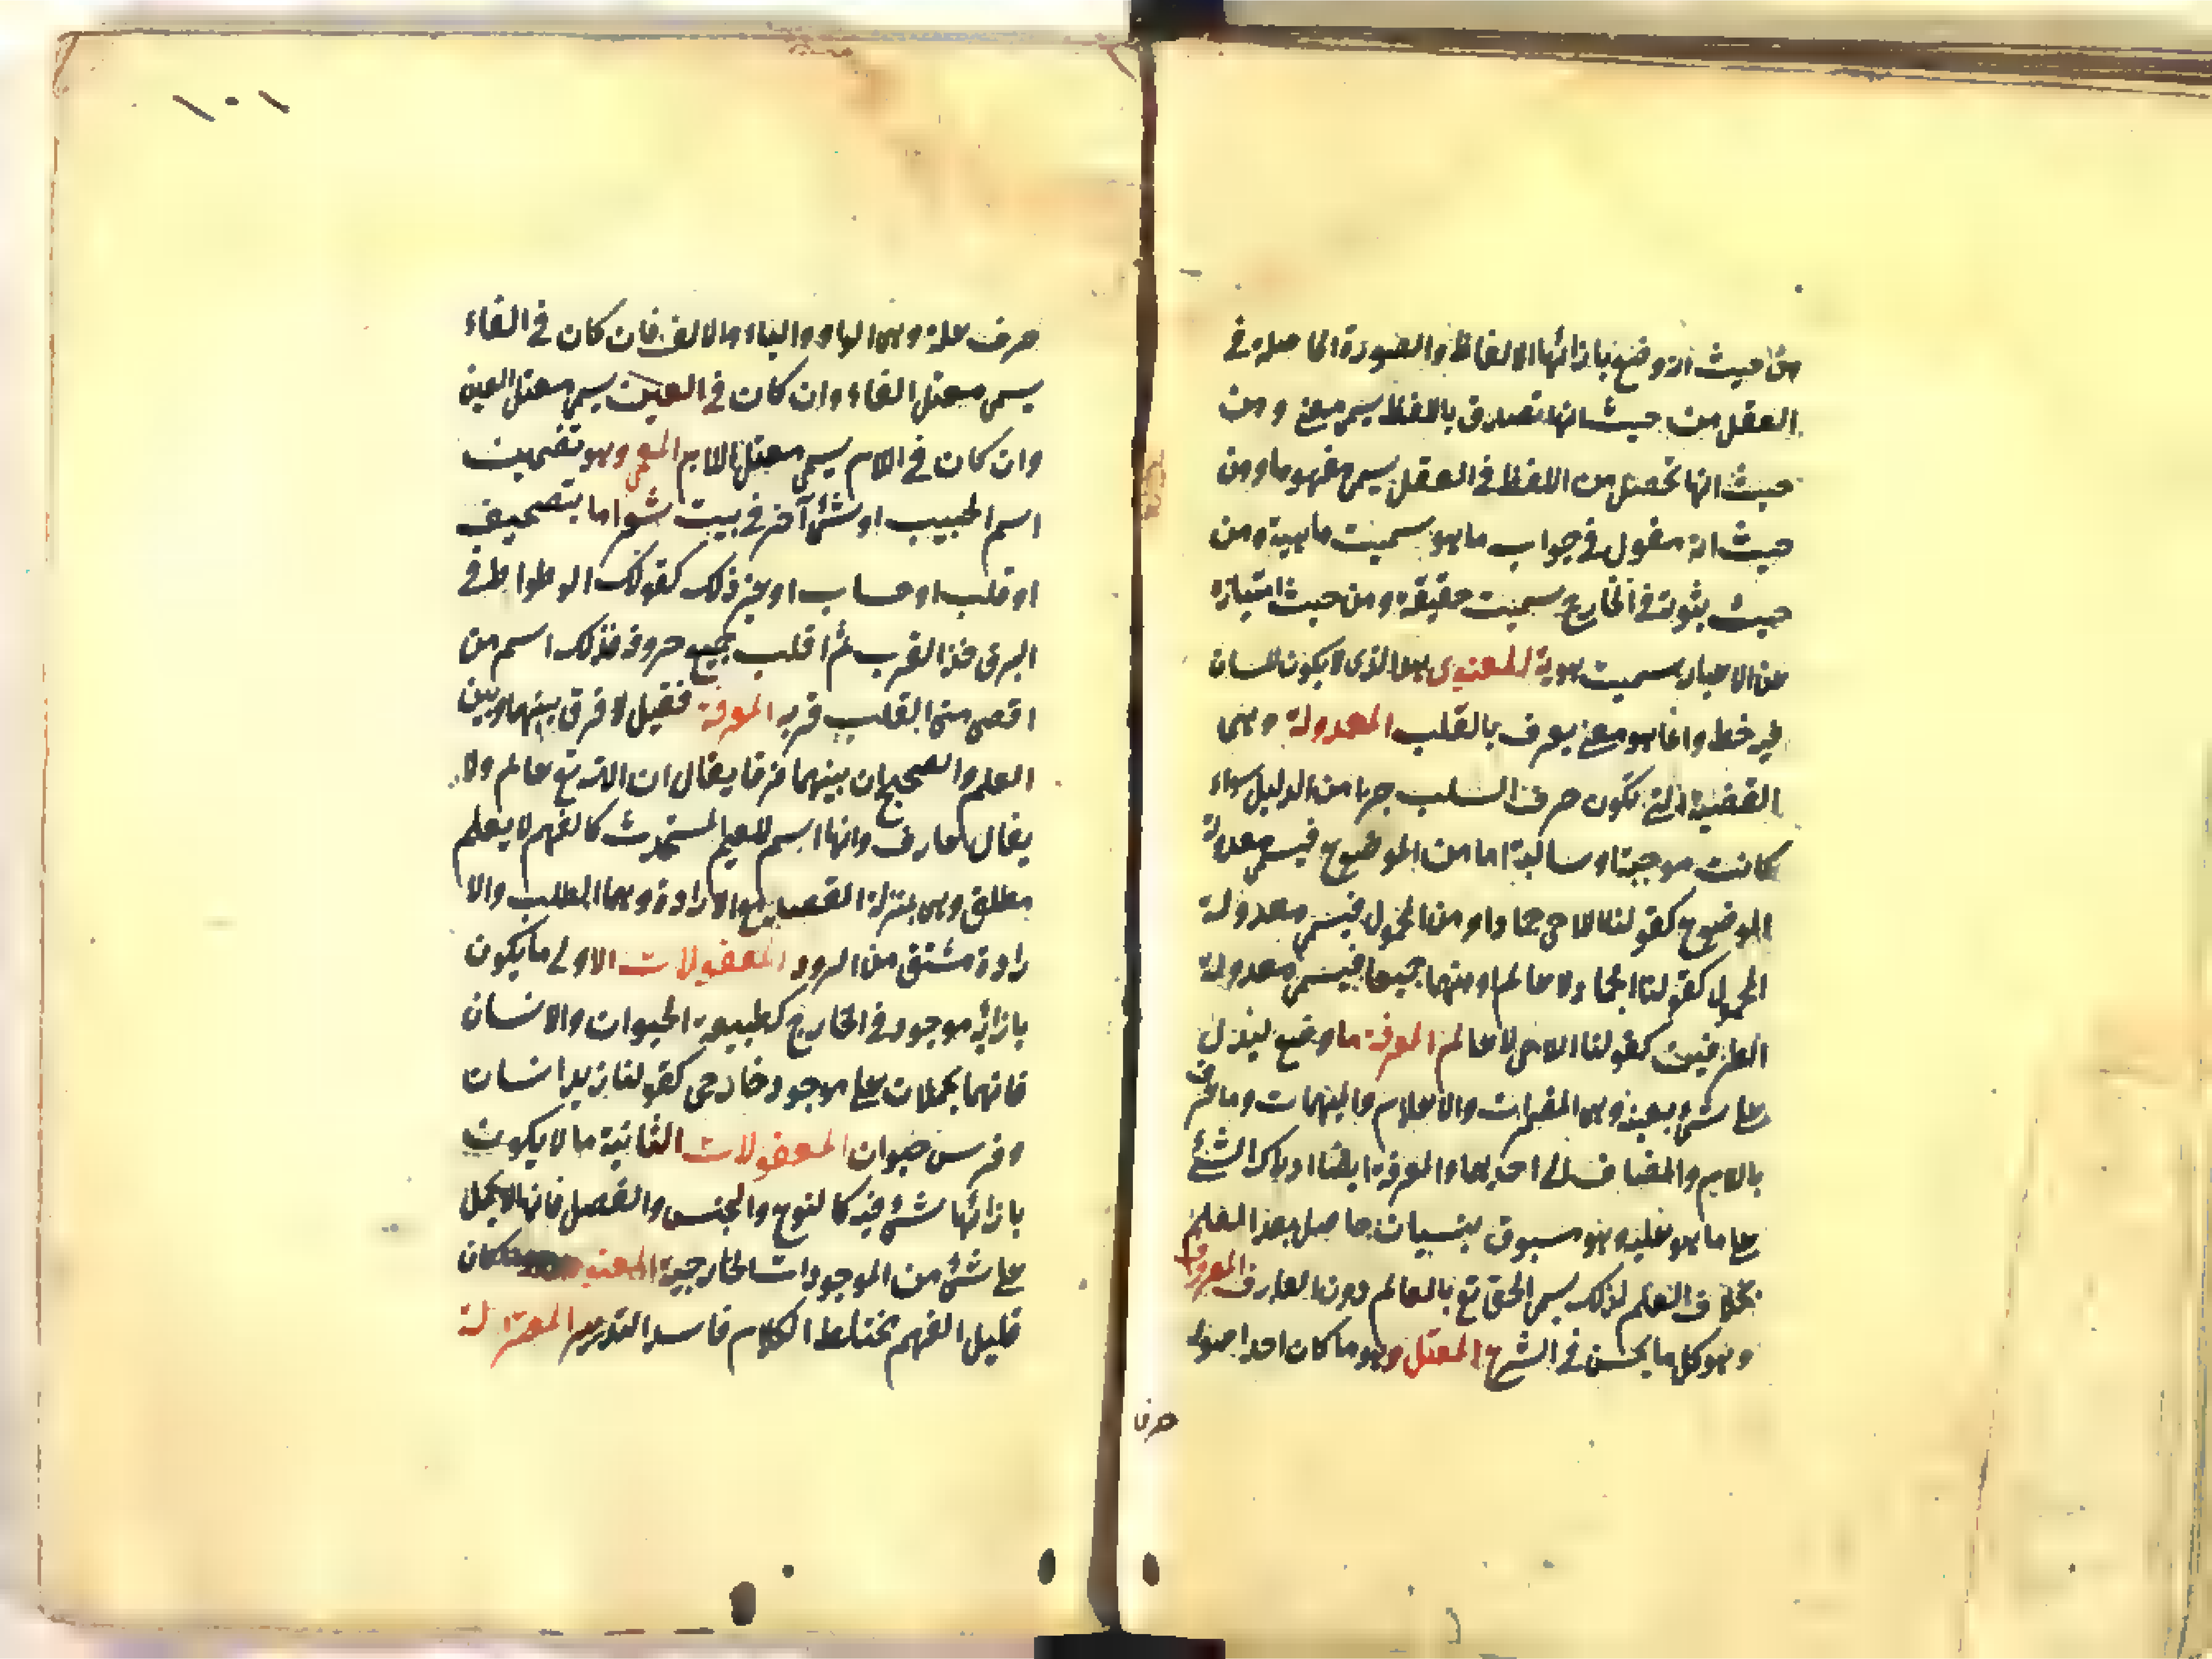 من حيث انه وضع بازائها الالفاظ والصورة الحاصلة في
العقل من حيث انها تقصد باللفظ يسمى معنى ومن
حيث انها تحصل من اللفظ في العقل يسمى مفهوما ومن
حيث انه مقول في جواب ما هو سميت ماهية ومن
حيث ثبوته في الخارج سميت حقيقة ومن حيث امتيازه
عن الاعيار سميت هوية المعنوى هو الذى لا يكون للسان
فيه خط وانما هو معنى يعرف بالقلب المعدولة وهى
القضية التى تكون حرف السلب جزا من الدليل سواء
كانت موجبة او سالبة اما من الموضوع فيسمى معدولة
الموضوع كقولنا اللاحى جماد او من المحمول فيسمى معدولة
المحمول كقولنا الجماد لا عالم او منهما جميعا فيسمى معدولة
الطرفين كقولنا اللاحى لا عالم المعرفة ما وضع ليدل
على شئ بعينه وهى المضمرات والاعلام والمبهمات وما عرف
باللام والمضاف الى احدهما والمعرفة ايضا ادراك الشئ
على ما هو عليه وهو مسبوق بنسيان حاصل بعد العلم
بخلاف العلم لذلك يسمى الحق تع بالعالم دون العارف المعروف
وهو كل ما يحسن في الشرع المعتل وهو ما كان احد اصوله
حرف
١٠١
حرف علة وهى الواو والياء والالف فان كان في الفاء
يسمى معتل الفاء وان كان في العين يسمى معتل العين
وان كان في اللام يسمى معتل اللام المعمى وهو تضمين
اسم الحبيب او شئ آخر في بيت شعر اما بتصحيف
او قلب او حساب او غير ذلك كقولك الوطواط في
البرق خذ القرب ثم اقلب جميع حروفه فذلك اسم من
اقصى منى القلب قربه المعرفة فقيل لا فرق بينها وبين
العلم والصحيح ان بينهما فرقا يقال ان الله تع عالم ولا
يقال عارف وانها اسم للعلم المستحدث كالفهم لا يعلم
مطلق وهى بمنزلة القصد مع الارادة وهما الطلب والا
رادة مشتق من الرود المعقولات الاولى ما يكون
بازائه موجود في الخارج كطبيعة الحيوان والانسان
فانهما يحملان على موجود خارجى كقولنا زيد انسان
وفرس حيوان المعقولات الثانية ما لا يكون
بازائها شئ فيه كالنوع والجنس والفصل فانها لا يحمل
على شئ من الموجودات الخارجية المعتوه كان
قليل الفهم مختلط الكلام فاسد التدبير المعتزلة